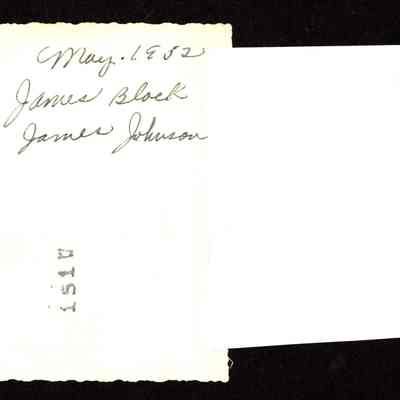 May. 1952
James Block
James Johnson
151W